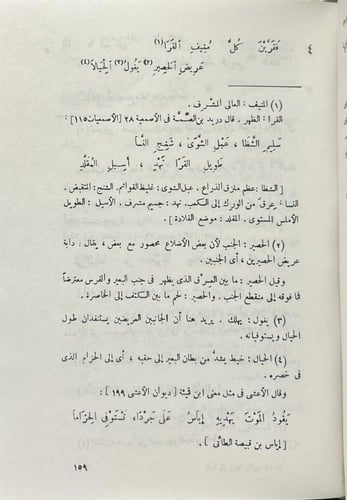 ٤ فَقَرَّبْنَ كُلَّ مُنِيفِ القَرَا (١)
عَرِيضِ الحَصِيرِ (٢) يَغُولُ (٣) الحِبَالَا (٤)
(١) المنيف : العالى المشرف .
القرا : الظهر . قال دريد بن الصمّة فى الأصمعية ٢٨ [ الأصمعيات ١١٥ ] :
سَلِيمُ الشَّظَا ، عَبْلُ الشَّوَى ، شَنِجُ النَّسَا
طَوِيلُ القَرَا نَهْدٌ ، أَسِيلُ المُقَلَّدِ
[ الشظا : عظم ملزق بالذراع . عبل الشوى : غليظ القوائم . الشنج : المتقبض .
النسا : عرق من الورك إلى الكعب . نهد : جسيم مشرف . الأسيل : الطويل
الأملس المستوى . المقلد : موضع القلادة ] .
(٢) الحصير : الجنب لأن بعض الأضلاع محصور مع بعض ، يقال : دابة
عريض الحصيرين ، أى الجنبين .
وقيل الحصير : ما بين العرق الذى يظهر فى جنب البعير والفرس معترضًا
فما فوقه إلى منقطع الجنب . والحصير : لحم ما بين الكتف إلى الخاصرة .
(٣) يغول : يهلك . يريد هنا أن الجانبين العريضين يستنفدان طول
الحبال ويستوفيانه .
(٤) الحبال : خيط يشدّ من بطان البعير إلى حقبه ، أى إلى الحزام الذى
فى خصره .
وقال الأعشى فى مثل معنى ابن قميئة [ ديوان الأعشى ١٩٩ ] .
يَقُودُ المَوْتَ يَهْدِيهِ إِيَاسٌ عَلَى جَرْدَاءَ تَسْتَوْفِى الحِزَامَا
[ إياس بن قبيصة الطائى ] .
١٥٩